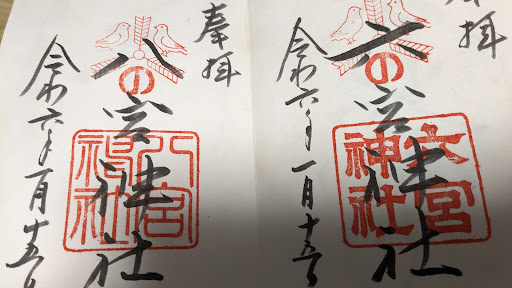 奉拝
六の宮神社
六宮神社
令和六年一月十五日
奉拝
八の宮神社
八宮神社
令和六年一月十五日